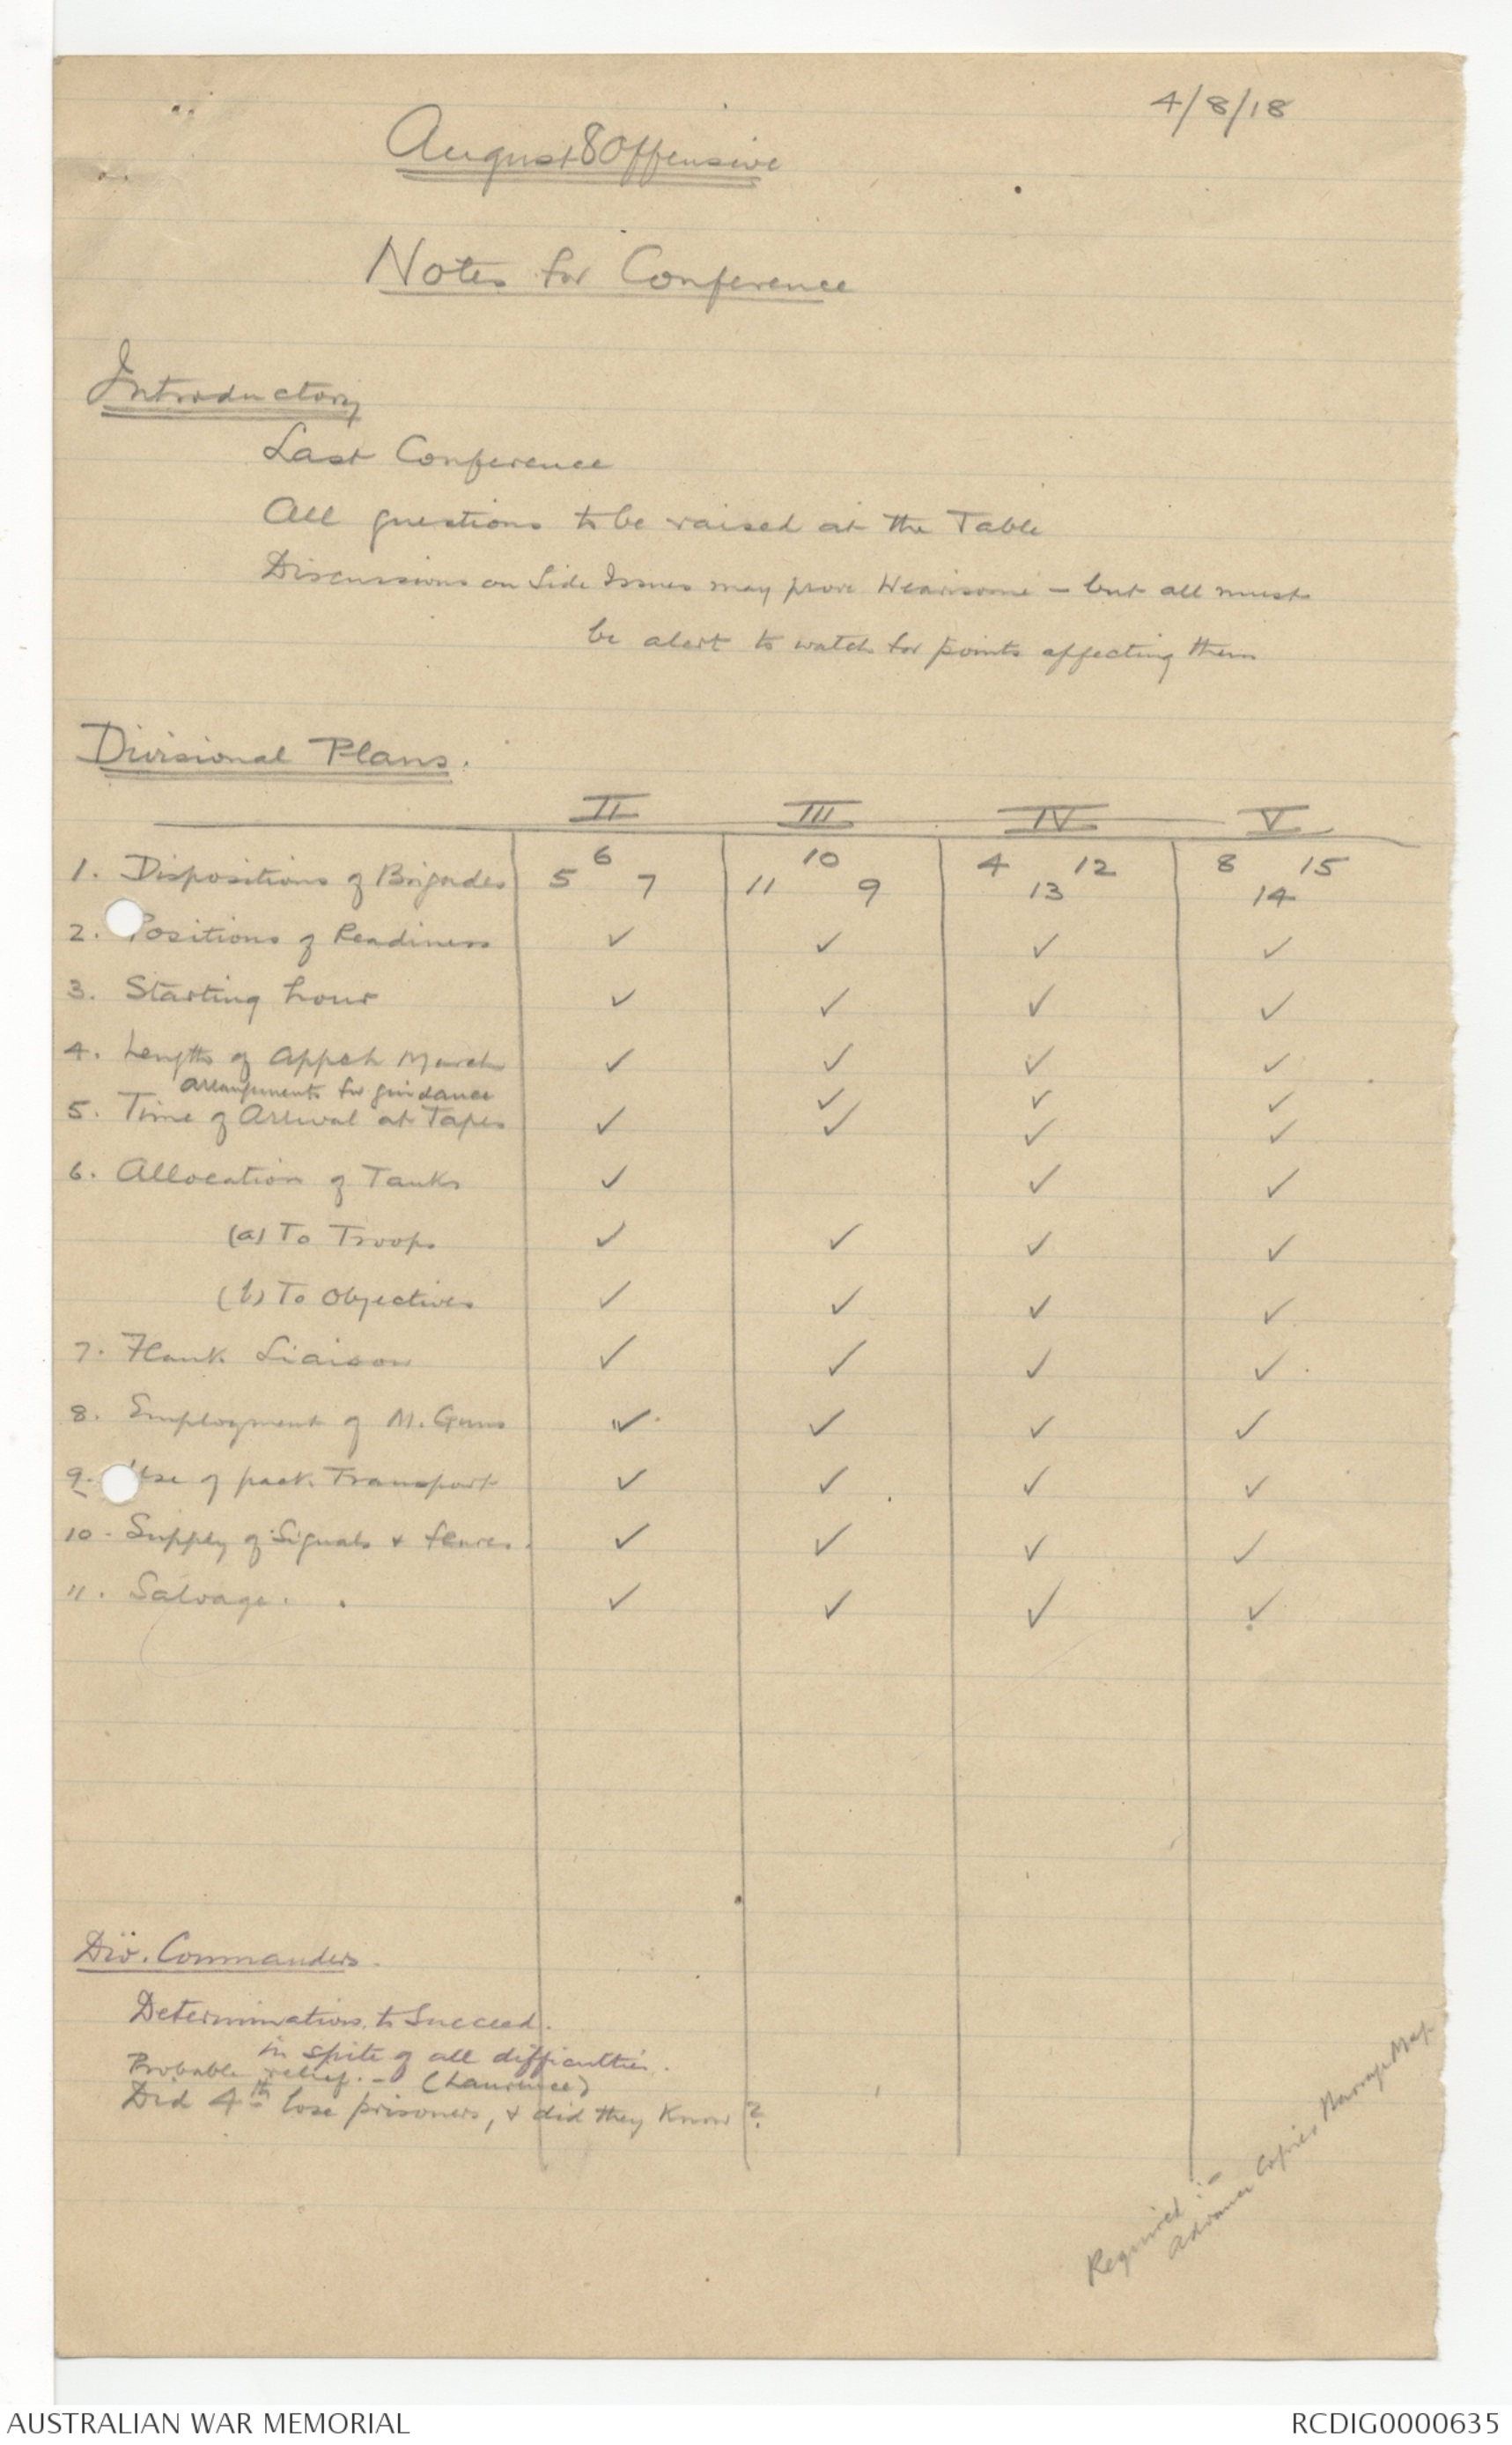 4/8/18
August 8 Offensive
Notes for Conference
Introductory
Last Conference
All questions to be raised at the Table
Discussions on Side Issues may prove Wearisome - but all must
be alert to watch for points affecting them
Divisional Plans.
II III IV V
6 10 4 12 8 15
1. Dispositions of Brigades 5 7 11 9 13 14
2. Positions of Readiness ✓ ✓ ✓ ✓
3. Starting hour ✓ ✓ ✓ ✓
4. Length of Appch March ✓ ✓ ✓ ✓
arrangements for guidance ✓ ✓ ✓
5. Time of Arrival at Tapes ✓ ✓ ✓ ✓
6. Allocation of Tanks ✓ ✓ ✓
(a) To Troops ✓ ✓ ✓ ✓
(b) To Objectives ✓ ✓ ✓ ✓
7. Flank Liaison ✓ ✓ ✓ ✓
8. Employment of M. Guns ✓ ✓ ✓ ✓
9. Use of pack Transport ✓ ✓ ✓ ✓
10. Supply of Signals & flares. ✓ ✓ ✓ ✓
11. Salvage. ✓ ✓ ✓ ✓
Div. Commanders.
Determination to Succeed.
in spite of all difficulties.
Probable relief. - (Laurence)
Did 4th lose prisoners, & did they Know?
Required :-
Advance Copies Barrage Map
AUSTRALIAN WAR MEMORIAL RCDIG0000635